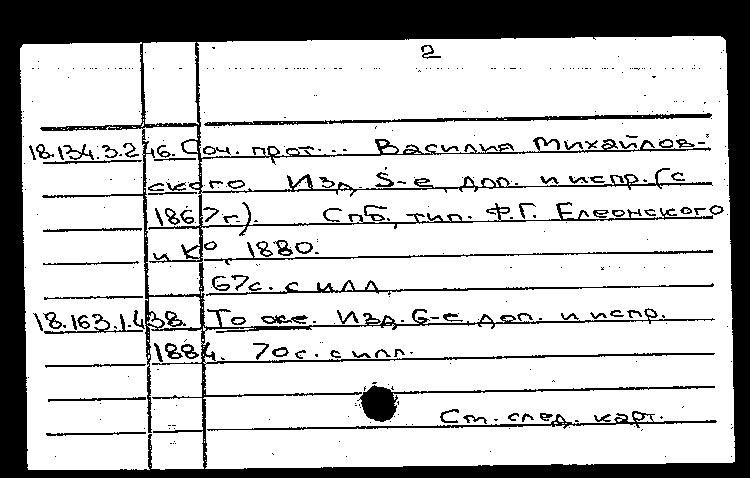 2
18.134.3.246. Соч. прот... Василия Михайлов-
ского. Изд. 5-е, доп. и испр. (с
1867 г). Спб, тип. Ф.Г. Елеонского
и К°, 1880.
67с. с илл.
18.163.1.438. То же. Изд. 6-е, доп. и испр.
1884. 70с. с илл.
См. след. карт.